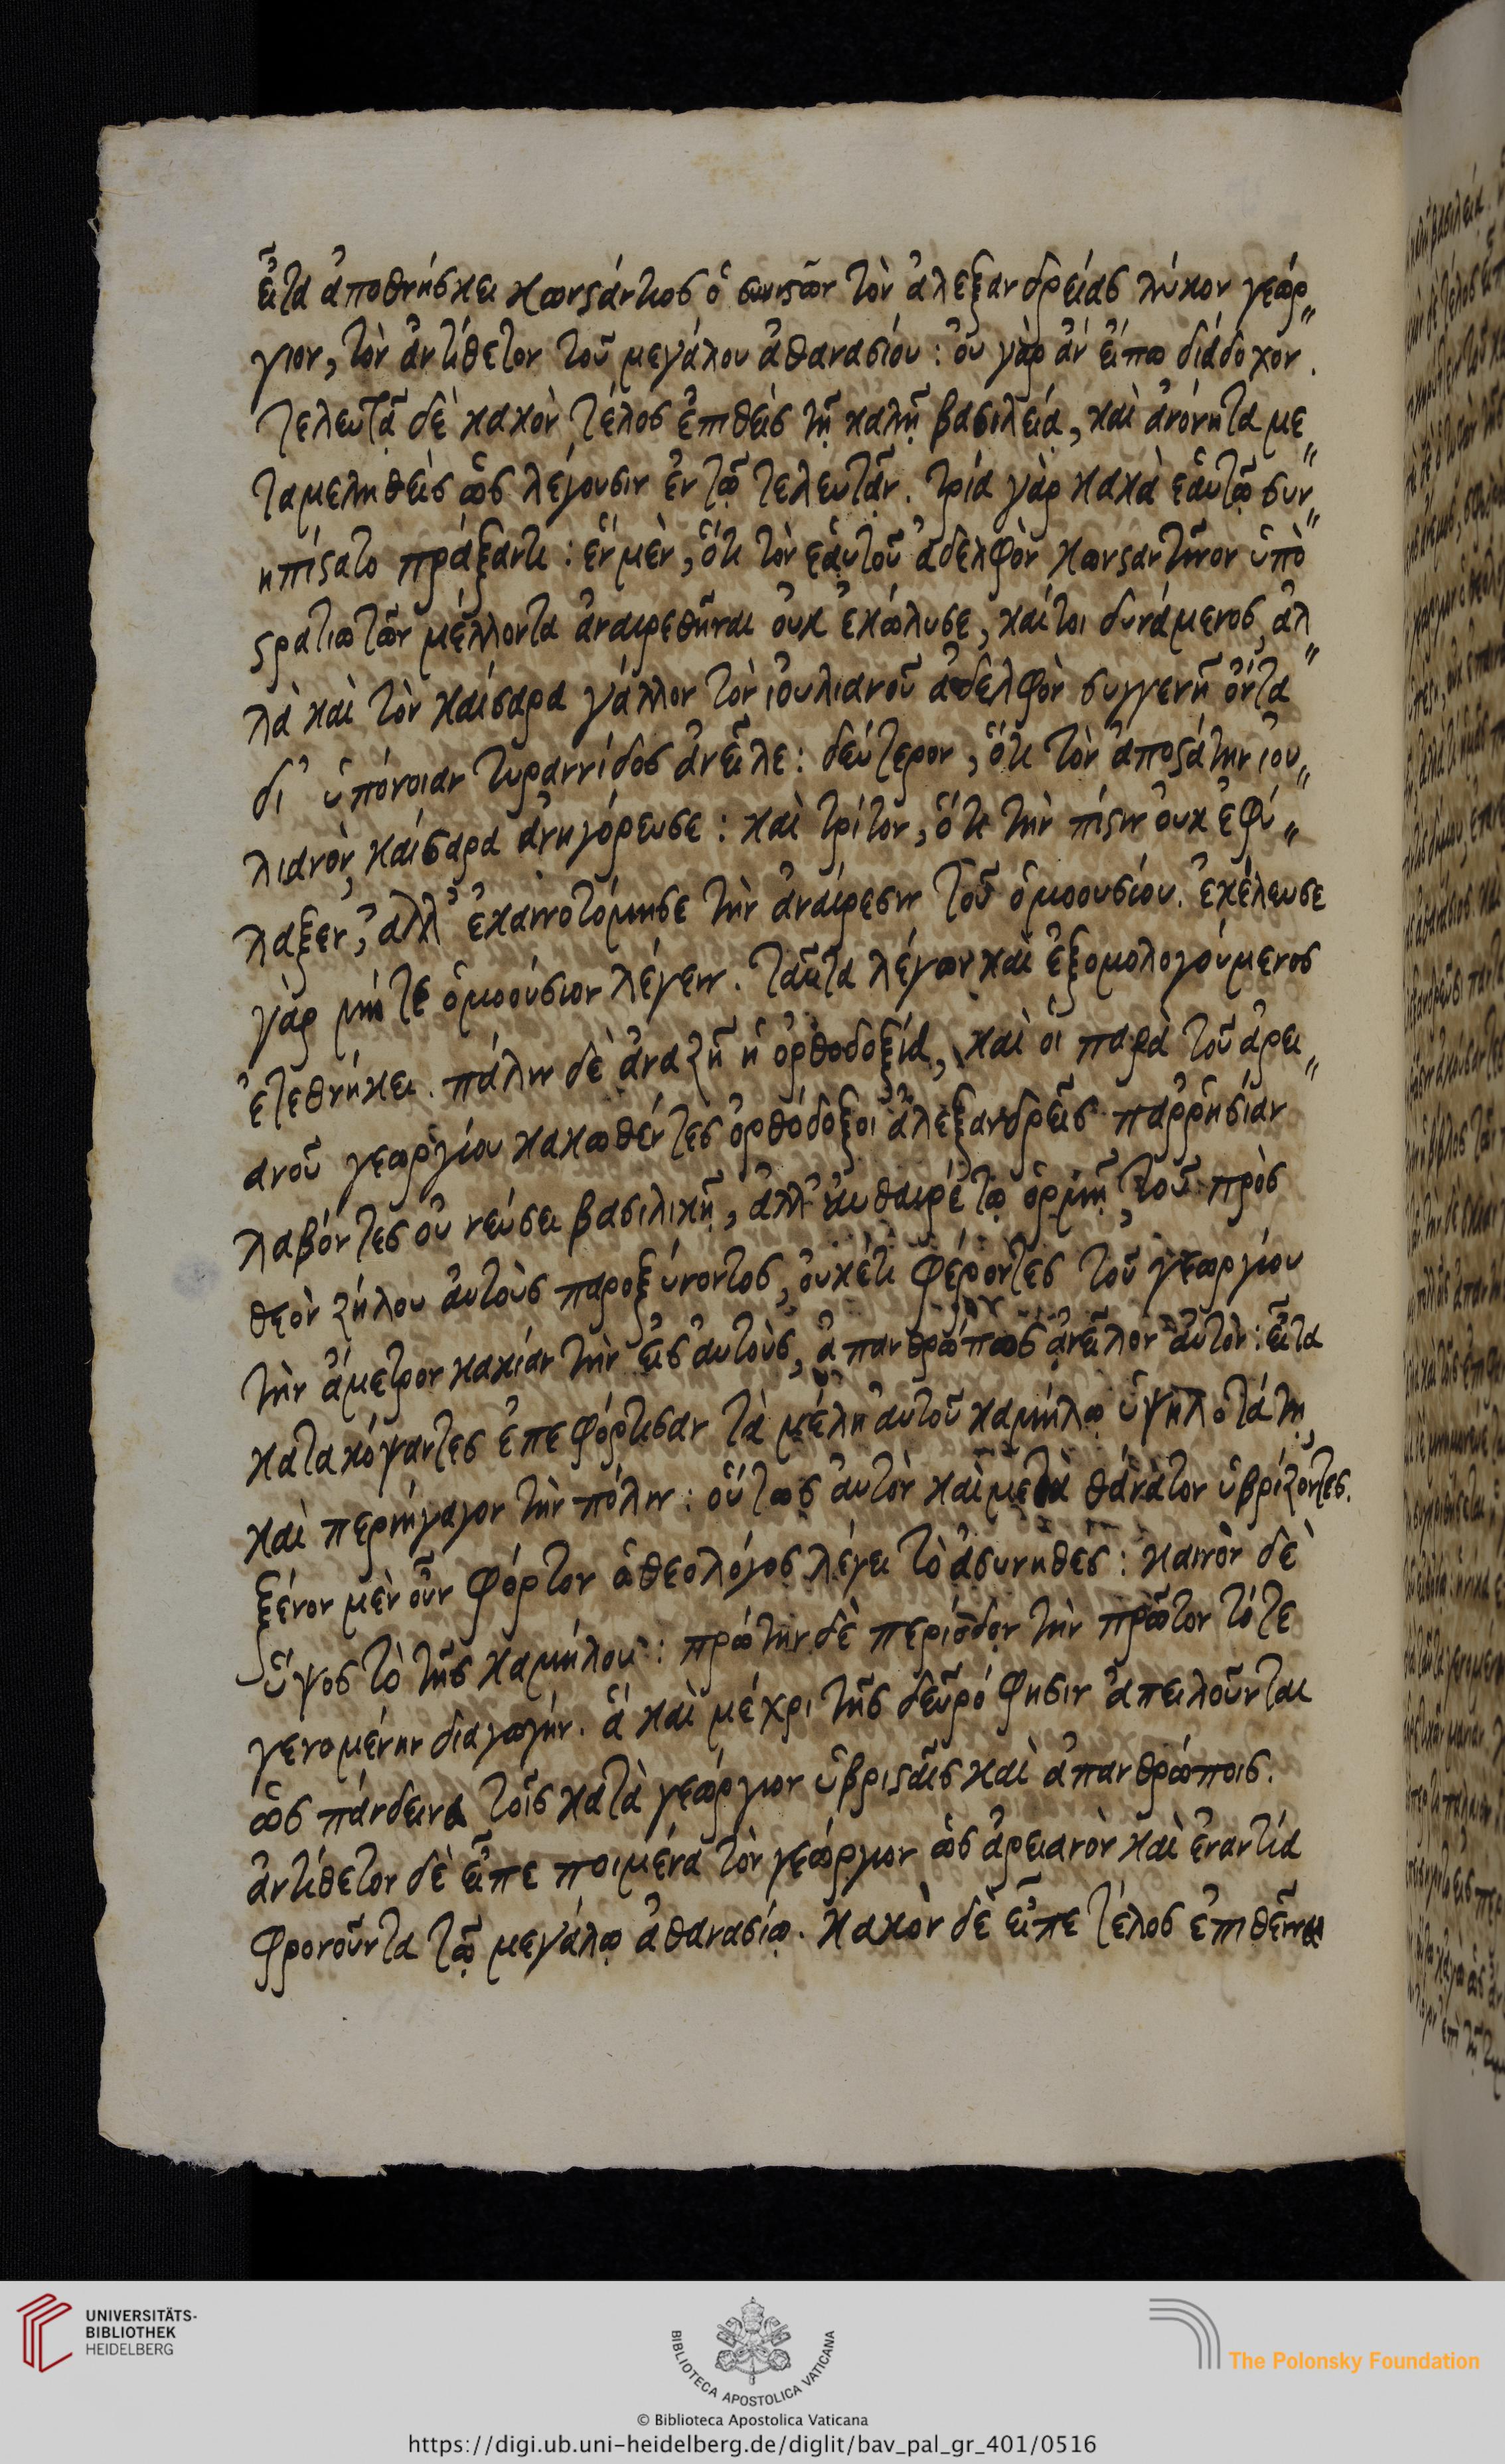 εἶτα ἀποθνήσκει κωνστάντιος ὁ συνιστῶν τὸν ἀλεξανδρείας λύκον γεώρ
γιον, τὸν ἀντίθετον τοῦ μεγάλου ἀθανασίου: οὐ γὰρ ἂν εἴπω διάδοχον.
τελευτᾷ δὲ κακὸν τέλος ἐπιθεὶς τῇ καλῇ βασιλείᾳ, καὶ ἀνόνητα με
ταμεληθεὶς ὥς λέγουσιν ἐν τῷ τελευτᾶν. τρία γὰρ κακὰ ἑαυτῷ συν
ηπίστατο πράξαντι: ἓν μὲν, ὅτι τὸν ἑαυτοῦ ἀδελφὸν κωνσταντῖνον ὑπὸ
στρατιωτῶν μέλλοντα ἀναιρεθῆναι οὐκ ἐκώλυσε, καίτοι δυνάμενος, ἀλ
λὰ καὶ τὸν καίσαρα γάλλον τὸν ἰουλιανοῦ ἀδελφὸν συγγενῆ ὄντα
δι' ὑπόνοιαν τυραννίδος ἀνεῖλε: δεύτερον, ὅτι τὸν ἀποστάτην ἰου
λιανὸν, καίσαρα ἀνηγόρευσε: καὶ τρίτον, ὅτι τὴν πίστιν οὐκ ἐφύ
λαξεν, ἀλλ' ἐκαινοτόμησε τὴν ἀναίρεσιν τοῦ ὁμοουσίου. ἐκέλευσε
γὰρ μήτε ὁμοούσιον λέγειν. ταῦτα λέγων καὶ ἐξομολογούμενος
ἐτεθνήκει. πάλιν δὲ ἀναζῇ ἡ ὀρθοδοξία, καὶ οἱ παρὰ τοῦ ἀρει
ανοῦ γεωργίου κακωθέντες ὀρθόδοξοι ἀλεξανδρεῖς παρρησίαν
λαβόντες οὐ νεύσει βασιλικῇ, ἀλλ' αὐθαιρέτῳ ὁρμῇ, τοῦ πρὸς
θεὸν ζήλου αὐτοὺς παροξύνοντος, οὐκέτι φέροντες τοῦ γεωργίου
τὴν ἄμετρον κακίαν τὴν εἰς αὐτοὺς, ἀπανθρώπως ἀνεῖλον αὐτὸν: εἶτα
κατακόψαντες ἐπεφόρτισαν τὰ μέλη αὐτοῦ καμήλῳ ὑψηλοτάτῃ,
καὶ περιήγαγον τὴν πόλιν: οὕτως αὐτὸν καὶ μετὰ θάνατον ὑβρίζοντες.
ξένον μὲν οὖν φόρτον ὁ θεολόγος λέγει τὸ ἀσύνηθες: καινὸν δὲ
ὕψος τὸ τῆς καμήλου: πρώτην δὲ περίοδον τὴν πρῶτον τότε
γενομένην διαγωγήν. ἃ καὶ μέχρι τῆς δεῦρό φησιν ἀπειλοῦνται
ὡς πάνδεινα τοῖς κατὰ γεώργιον ὑβρισταῖς καὶ ἀπανθρώποις.
ἀντίθετον δὲ εἶπε ποιμένα τὸν γεώργιον ὡς ἀρειανὸν καὶ ἐναντία
φρονοῦντα τῷ μεγάλῳ ἀθανασίῳ. κακὸν δὲ εἶπε τέλος ἐπιθεῖναι
UNIVERSITÄTS-
BIBLIOTHEK
HEIDELBERG
BIBLIOTECA APOSTOLICA VATICANA
The Polonsky Foundation
© Biblioteca Apostolica Vaticana
https://digi.ub.uni-heidelberg.de/diglit/bav_pal_gr_401/0516